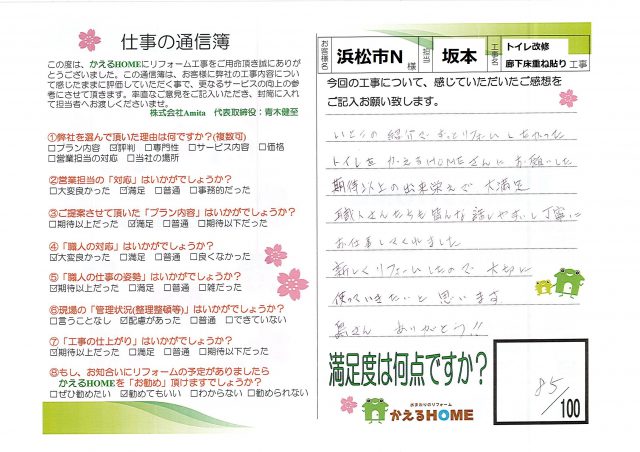 仕事の通信簿
この度は、かえるHOMEにリフォーム工事をご用命頂き誠にありが
とうございました。この通信簿は、お客様に弊社の工事内容につい
て感じたままに評価していただく事で、更なるサービスの向上の参
考にさせて頂きます。率直なご意見をご記入いただき、封筒に入れ
て担当者へお渡しくださいませ。
株式会社Amita 代表取締役:青木健至
①弊社を選んで頂いた理由は何ですか?(複数可)
□プラン内容 ☑評判 □専門性 □サービス内容 □価格
□営業担当の対応 □当社の場所
②営業担当の「対応」はいかがでしょうか?
□大変良かった ☑満足 □普通 □事務的だった
③ご提案させて頂いた「プラン内容」はいかがでしょうか?
□期待以上だった ☑満足 □普通 □期待以下だった
④「職人の対応」はいかがでしょうか?
☑大変良かった □満足 □普通 □良くなかった
⑤「職人の仕事の姿勢」はいかがでしょうか?
☑期待以上だった □満足 □普通 □雑だった
⑥現場の「管理状況(整理整頓等)」はいかがでしょうか?
□言うことなし ☑配慮があった □普通 □できていない
⑦「工事の仕上がり」はいかがでしょうか?
☑期待以上だった □満足 □普通 □期待以下だった
⑧もし、お知合いにリフォームの予定がありましたら
かえるHOMEを「お勧め」頂けますでしょうか?
□ぜひ勧めたい ☑勧めてもいい □わからない □勧められない
お客様名 浜松市N 様 担当 坂本 工事名 トイレ改修 廊下床重ね貼り 工事
今回の工事について、感じていただいたご感想を
ご記入お願い致します。
いとこの紹介でずっとリフォームしたかった
トイレをかえるHOMEさんにお願いした
期待以上の出来栄えで大満足
職人さんたちも皆んな話しやすいし丁寧に
お仕事してくれました
新しくリフォームしたので大切に
使っていきたいと思います
さん ありがとう!!
満足度は何点ですか?
85/100
水まわりのリフォーム
かえるHOME